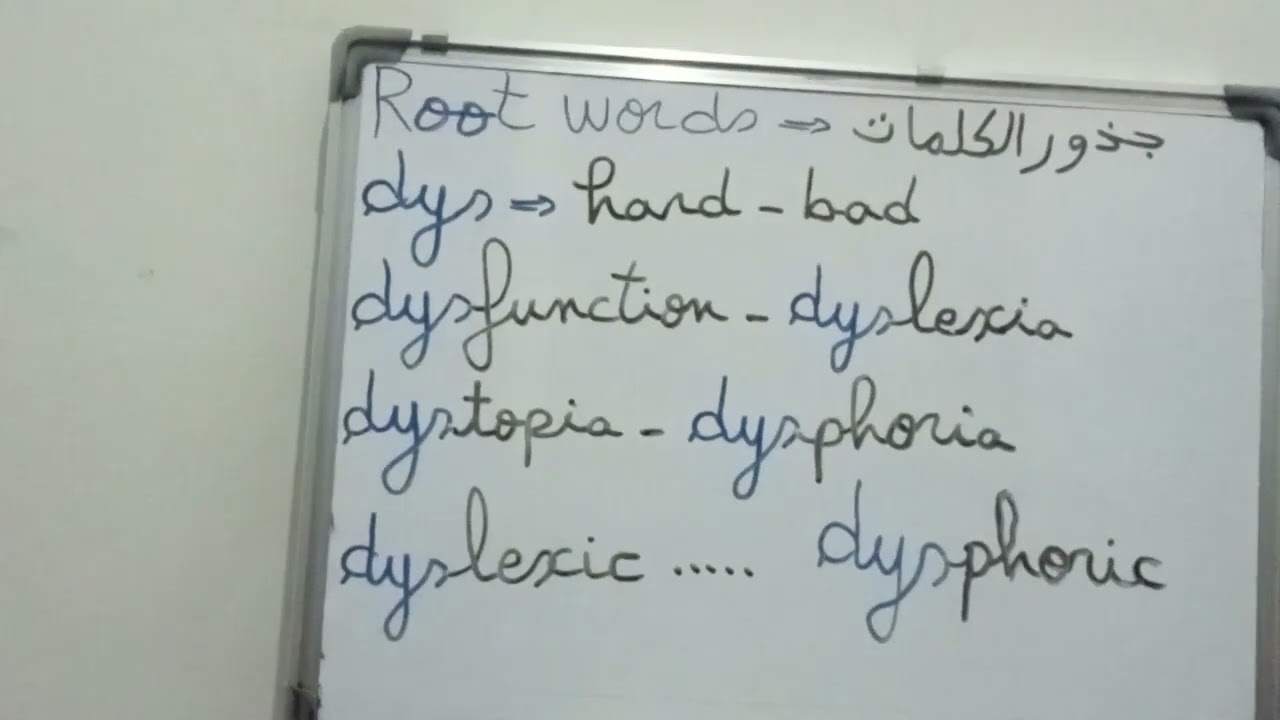 Root words ⇒ جذور الكلمات
dys ⇒ hard - bad
dysfunction - dyslexia
dystopia - dysphoria
dyslexic ..... dysphoric